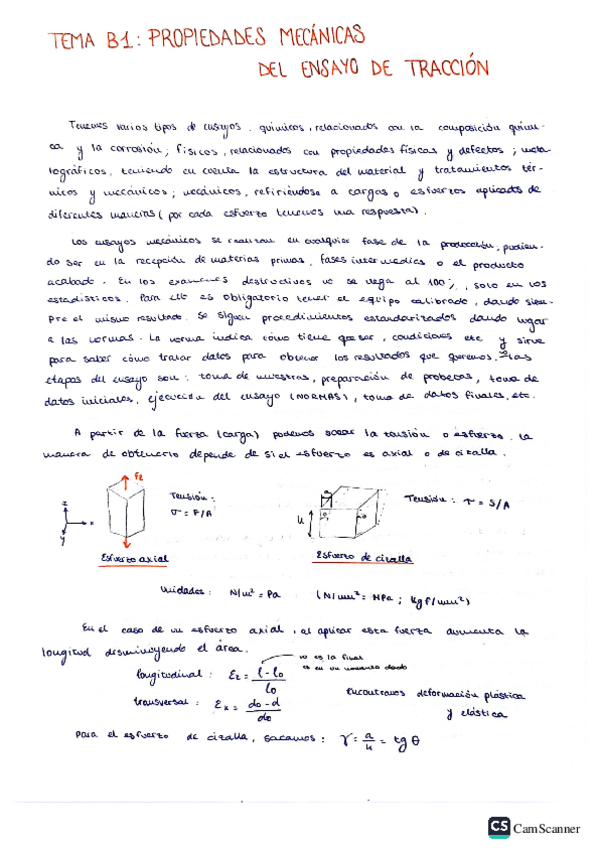 TEMA B1: PROPIEDADES MECÁNICAS
DEL ENSAYO DE TRACCIÓN
Tenemos varios tipos de ensayos: químicos, relacionados con la composición quími-
ca y la corrosión; físicos, relacionados con propiedades físicas y defectos; meta
lográficos, teniendo en cuenta la estructura del material y tratamientos tér-
micos y mecánicos; mecánicos, refiriéndose a cargas o esfuerzos aplicados de
diferentes maneras (por cada esfuerzo tenemos una respuesta).
Los ensayos mecánicos se realizan en cualquier fase de la producción, pudien-
do ser en la recepción de materias primas, fases intermedias o el producto
acabado. En los exámenes destructivos no se llega al 100%, solo en los
estadísticos. Para ello es obligatorio tener el equipo calibrado, dando siem-
pre el mismo resultado. Se siguen procedimientos estandarizados dando lugar
a las normas. La norma indica cómo tiene que ser, condiciones etc y sirve
para saber cómo tratar datos para obtener los resultados que queremos. Las
etapas del ensayo son: toma de muestras, preparación de probetas, toma de
datos iniciales, ejecución del ensayo (NORMAS), toma de datos finales, etc.
A partir de la fuerza (carga) podemos sacar la tensión o esfuerzo. La
manera de obtenerlo depende de si el esfuerzo es axial o de cizalla.
Fz
z
x
y
Tensión:
σ = F/A
Esfuerzo axial
u
Tensión: τ = S/A
Esfuerzo de cizalla
Unidades: N/m² = Pa (N/mm² = MPa ; kgf/mm²)
En el caso de un esfuerzo axial, al aplicar esta fuerza aumenta la
longitud disminuyendo el área.
no es la final
es en un momento dado
longitudinal: εz = l - l0 / l0
transversal: εx = d0 - d / d0
Encontramos deformación plástica
y elástica
Para el esfuerzo de cizalla, sacamos: γ = a/h = tg θ
CS CamScanner